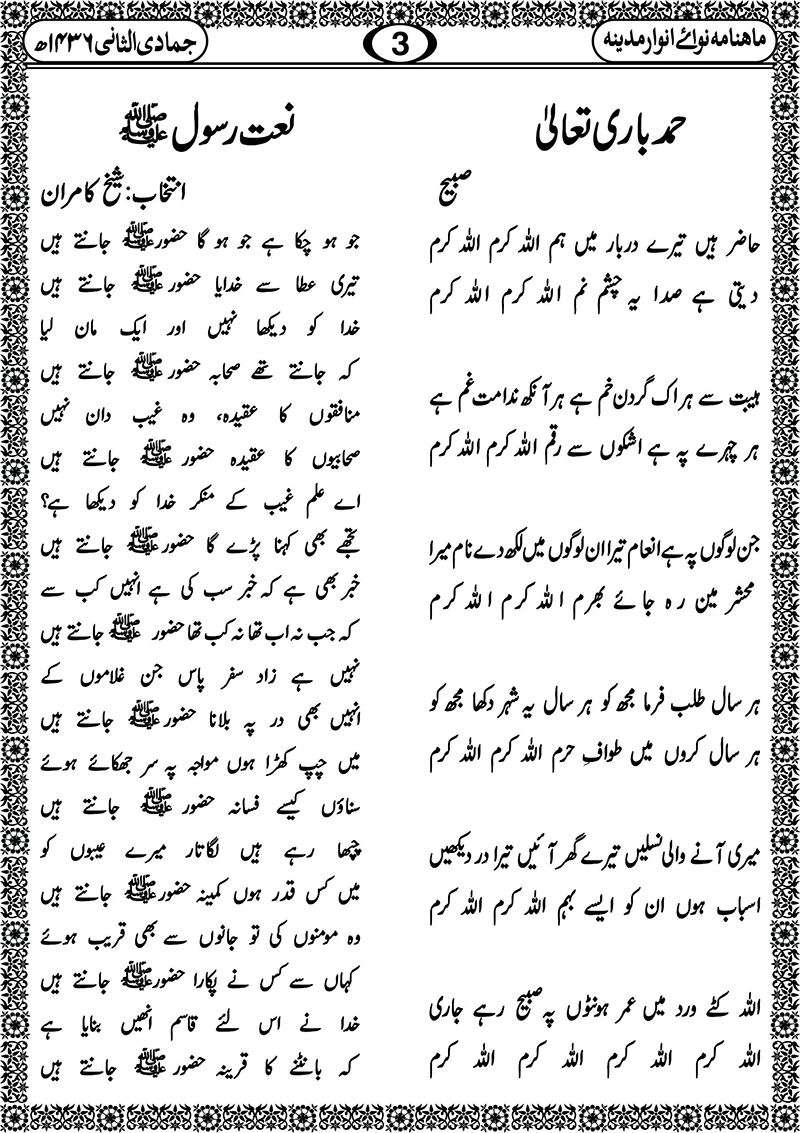 ماهنامه نوائے انوار مدینه
3
جمادی الثانی ۱۴۳۶ھ
حمد باری تعالیٰ
صبیح
حاضر ہیں تیرے دربار میں ہم اللہ کرم اللہ کرم
دیتی ہے صدا یہ چشم نم اللہ کرم اللہ کرم
ہیبت سے ہر اک گردن خم ہے ہر آنکھ ندامت غم ہے
ہر چہرے پہ ہے اشکوں سے رقم اللہ کرم اللہ کرم
جن لوگوں پہ ہے انعام تیرا ان لوگوں میں لکھ دے نام میرا
محشر مین رہ جائے بھرم اللہ کرم اللہ کرم
ہر سال طلب فرما مجھ کو ہر سال یہ شہر دکھا مجھ کو
ہر سال کروں میں طوافِ حرم اللہ کرم اللہ کرم
میری آنے والی نسلیں تیرے گھر آئیں تیرا در دیکھیں
اسباب ہوں ان کو ایسے بہم اللہ کرم اللہ کرم
اللہ کٹے ورد میں عمر ہونٹوں پہ صبیح رہے جاری
اللہ کرم اللہ کرم اللہ کرم اللہ کرم
نعت رسول ﷺ
انتخاب: شیخ کامران
جو ہو چکا ہے جو ہو گا حضور ﷺ جانتے ہیں
تیری عطا سے خدایا حضور ﷺ جانتے ہیں
خدا کو دیکھا نہیں اور ایک مان لیا
کہ جانتے تھے صحابہ حضور ﷺ جانتے ہیں
منافقوں کا عقیدہ، وہ غیب دان نہیں
صحابیوں کا عقیدہ حضور ﷺ جانتے ہیں
اے علم غیب کے منکر خدا کو دیکھا ہے؟
تجھے بھی کہنا پڑے گا حضور ﷺ جانتے ہیں
خبر بھی ہے کہ خبر سب کی ہے انہیں کب سے
کہ جب نہ اب تھا نہ کب تھا حضور ﷺ جانتے ہیں
نہیں ہے زاد سفر پاس جن غلاموں کے
انہیں بھی در پہ بلانا حضور ﷺ جانتے ہیں
میں چپ کھڑا ہوں مواجہ پہ سر جھکائے ہوئے
سناؤں کیسے فسانہ حضور ﷺ جانتے ہیں
چھپا رہے ہیں لگاتار میرے عیبوں کو
میں کس قدر ہوں کمینہ حضور ﷺ جانتے ہیں
وہ مومنوں کی تو جانوں سے بھی قریب ہوئے
کہاں سے کس نے پکارا حضور ﷺ جانتے ہیں
خدا نے اس لئے قاسم انھیں بنایا ہے
کہ بانٹنے کا قرینہ حضور ﷺ جانتے ہیں